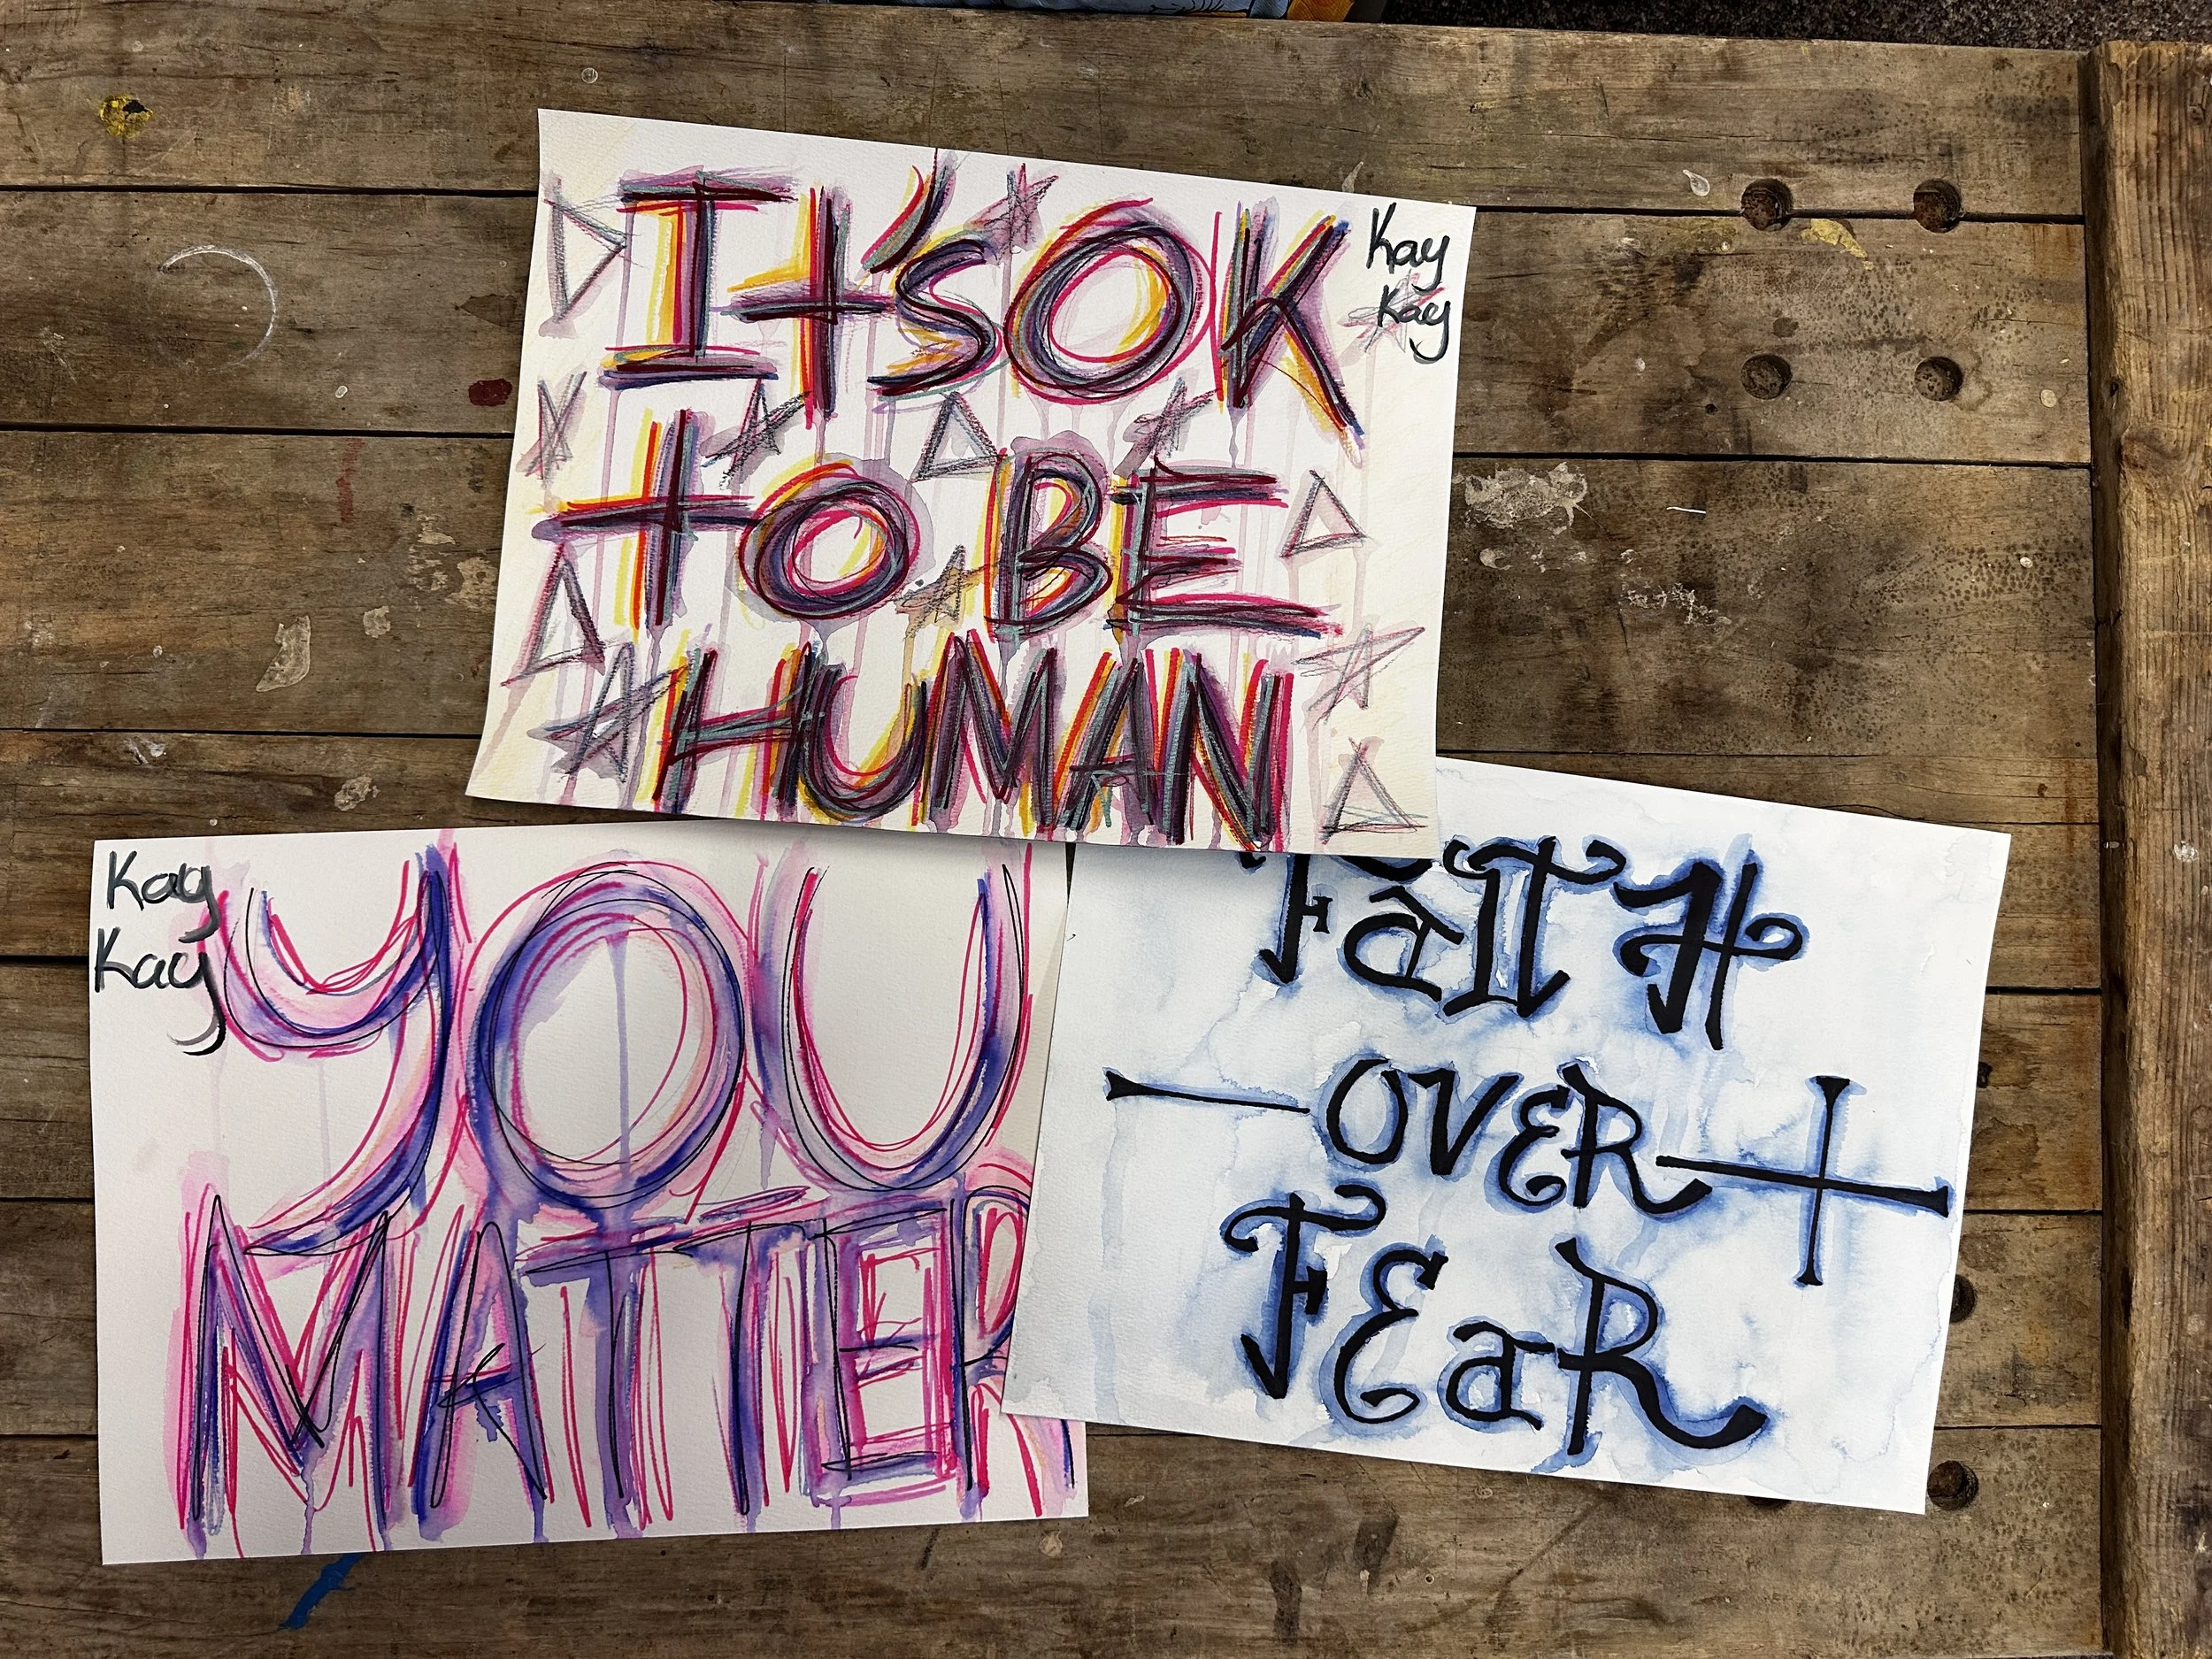 It's OK
to BE
HUMAN
Kay
Kay
Kay
Kay
YOU
MATTER
FaITH
OVER
FEaR